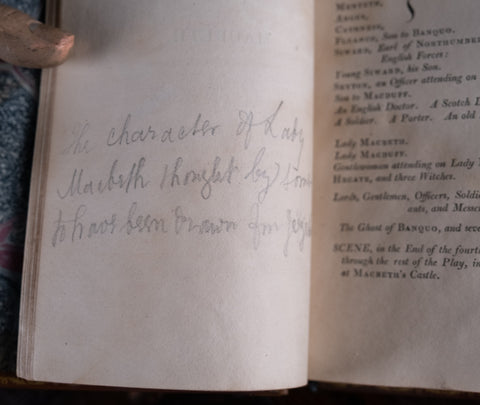 The character of Lady
Macbeth thought by some
to have been drawn from
MENTETH,
ANGUS,
CAITHNESS,
FLEANCE, Son to BANQUO.
SIWARD, Earl of NORTHUMBER
English Forces:
Young SIWARD, his Son.
SEYTON, an Officer attending on
Son to MACDUFF.
An English Doctor. A Scotch D
A Soldier. A Porter. An old
Lady MACBETH.
Lady MACDUFF.
Gentlewomen attending on Lady
HECATE, and three Witches.
Lords, Gentlemen, Officers, Soldie
ants, and Messen
The Ghost of BANQUO, and seve
SCENE, in the End of the fourt
through the rest of the Play, in
at MACBETH's Castle.